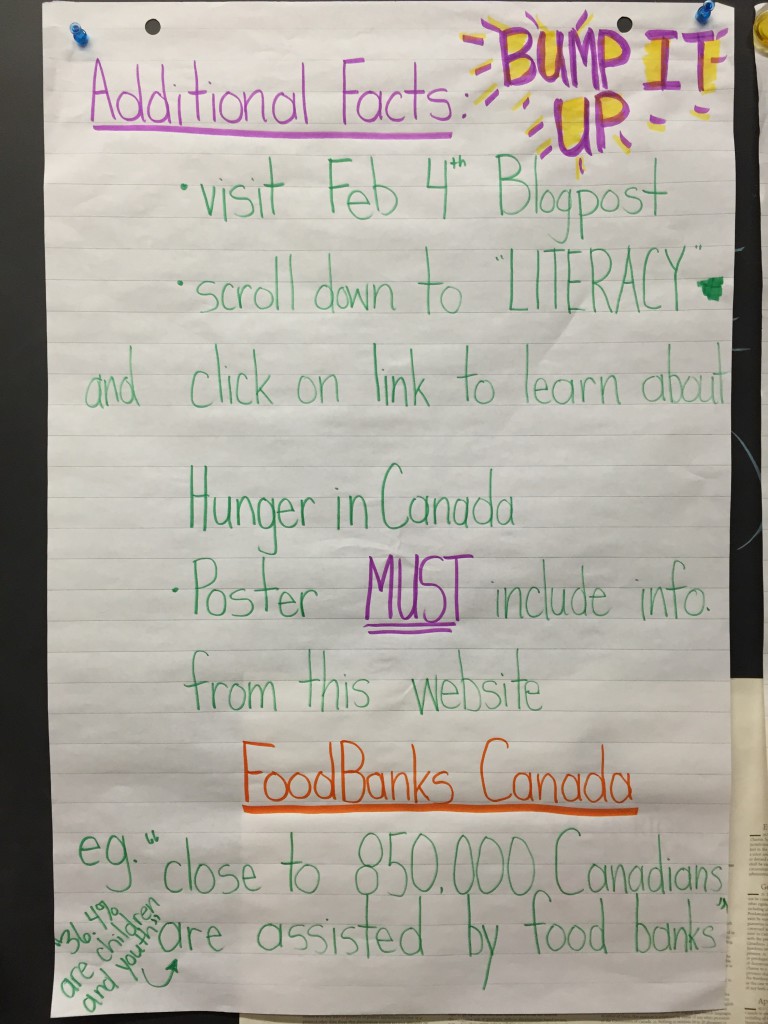 Additional Facts:
BUMP IT
UP
• visit Feb 4th Blogpost
• scroll down to "LITERACY"
and click on link to learn about
Hunger in Canada
• Poster MUST include info.
from this website
FoodBanks Canada
eg. "close to 850,000 Canadians
are assisted by food banks"
"36.4%
are children
and youth"